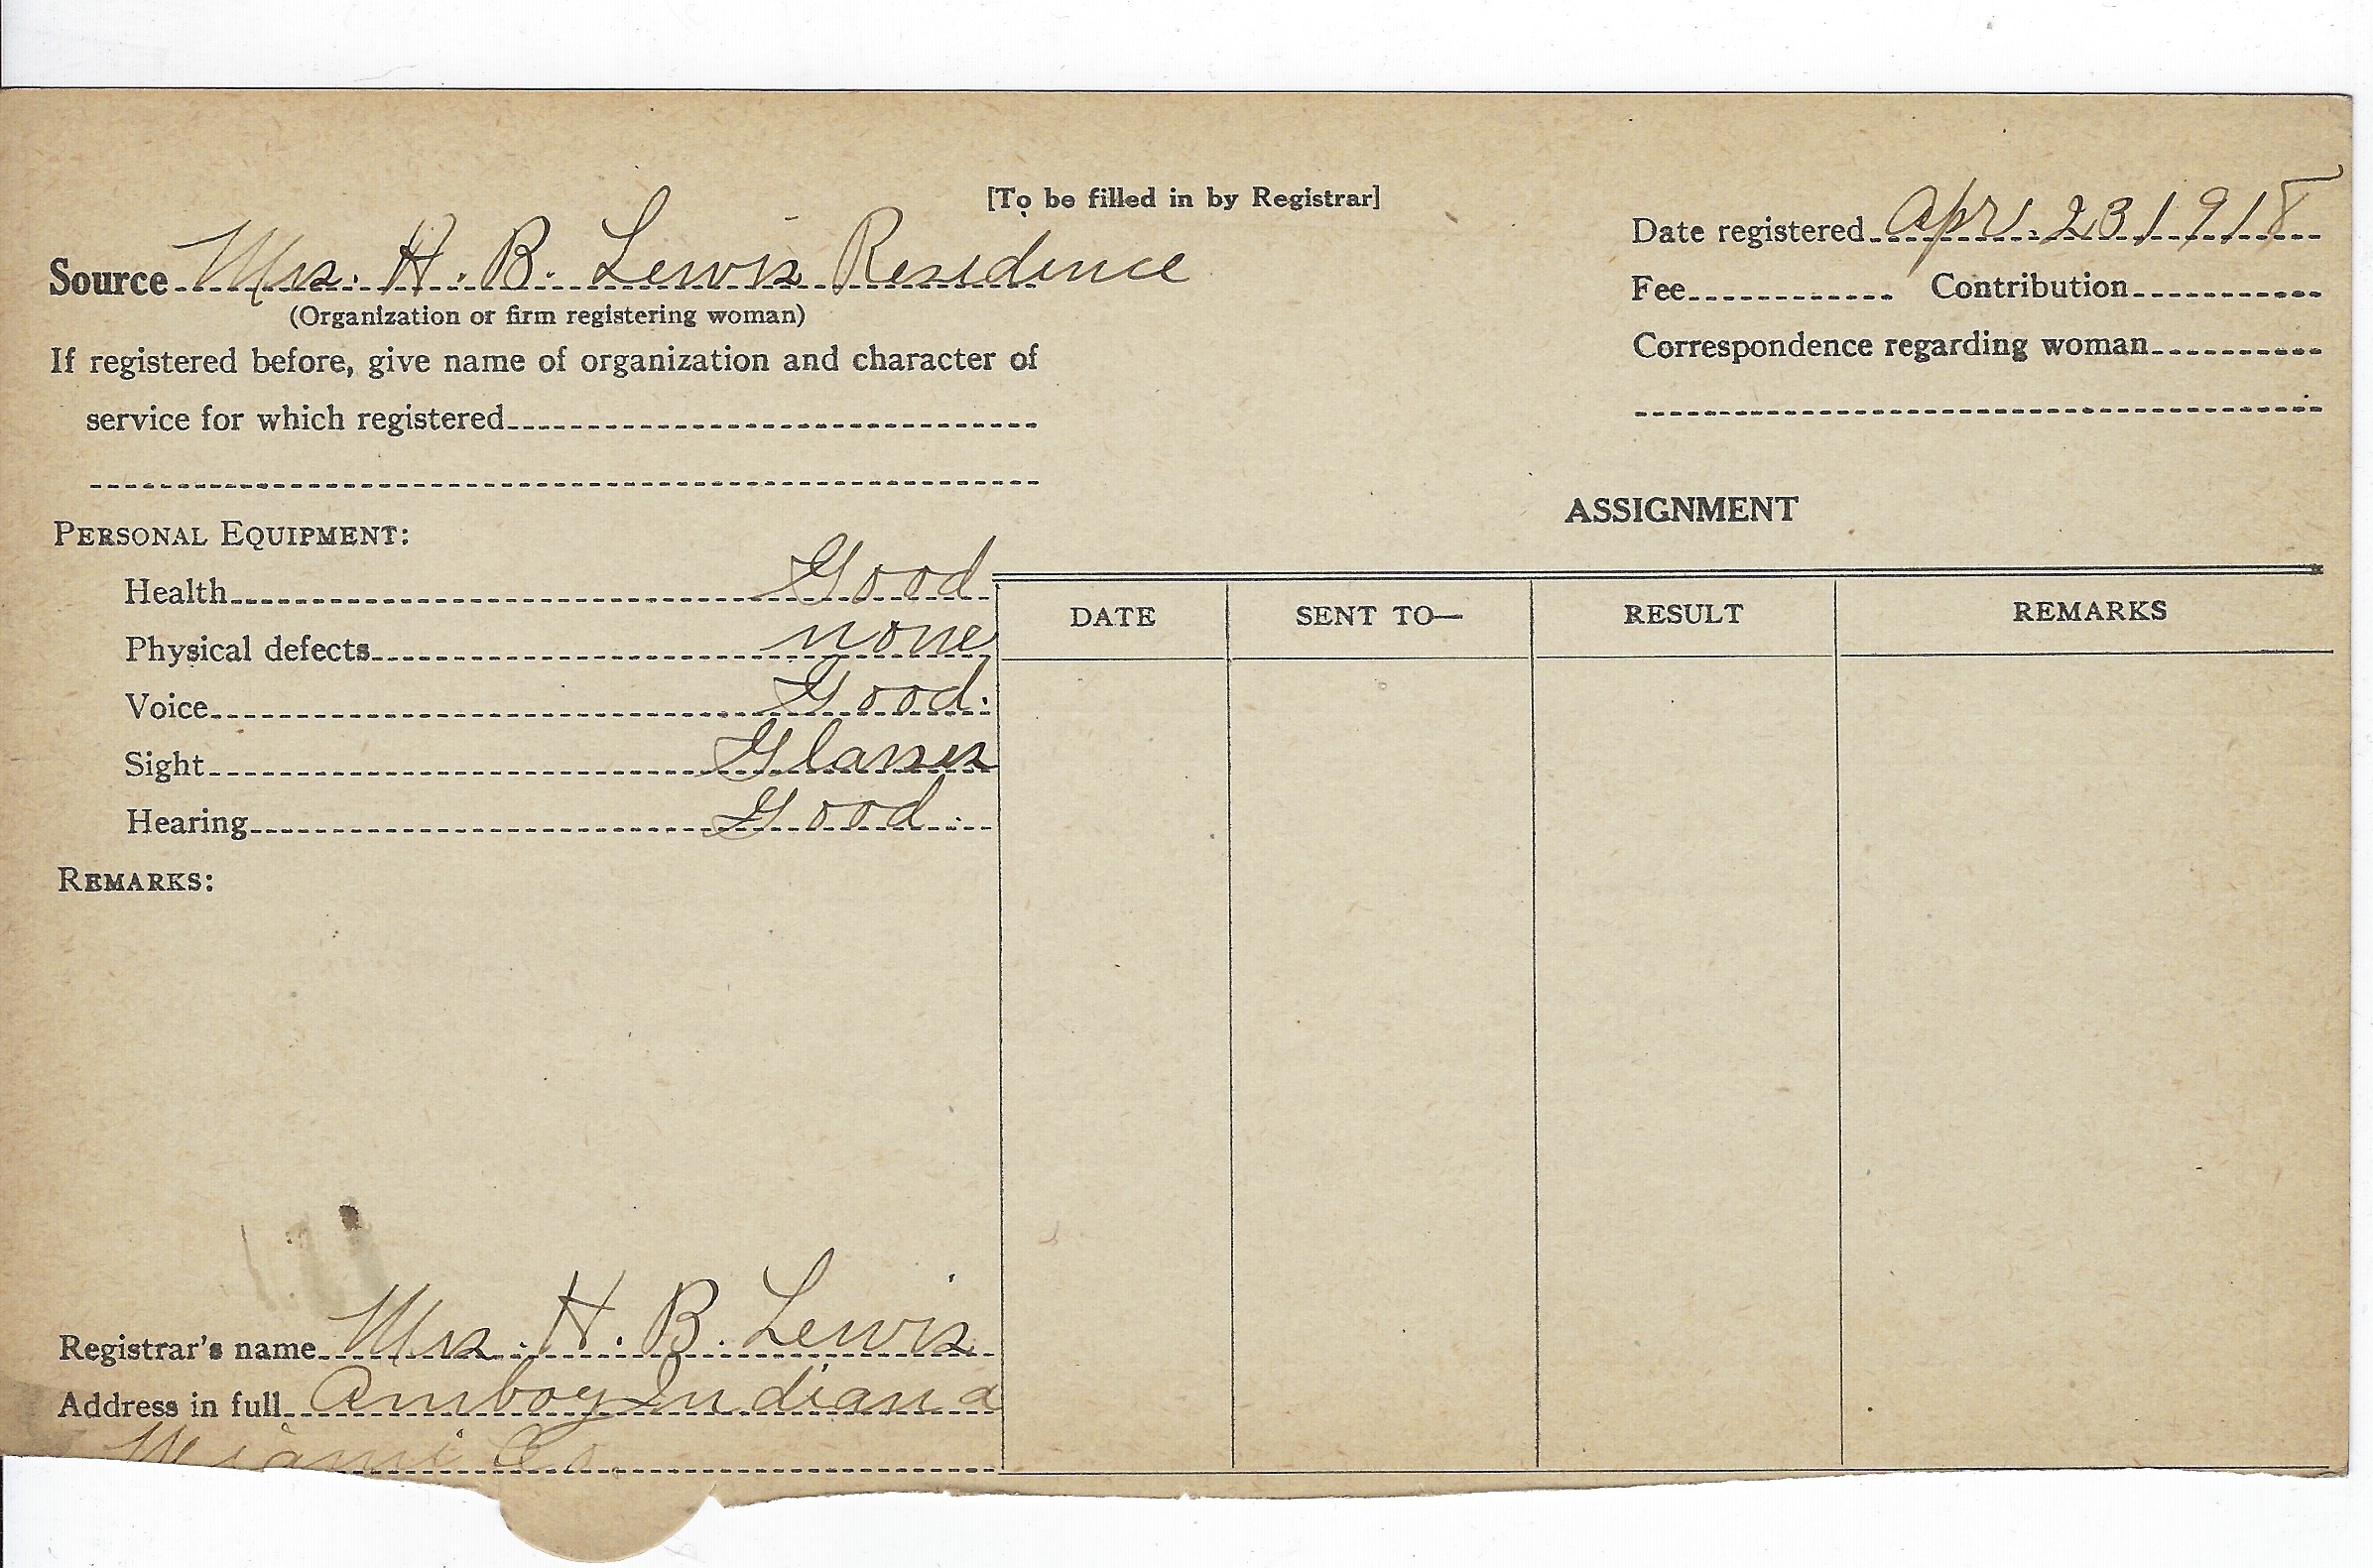 [To be filled in by Registrar]
Source Mrs. H. B. Lewis Residence
(Organization or firm registering woman)
If registered before, give name of organization and character of
service for which registered
Date registered Apr. 23 1918
Fee Contribution
Correspondence regarding woman
PERSONAL EQUIPMENT:
Health Good
Physical defects none
Voice Good.
Sight Glasses
Hearing Good.
REMARKS:
Registrar's name Mrs. H. B. Lewis
Address in full Amboy Indiana
Miami Co.
ASSIGNMENT
DATE SENT TO— RESULT REMARKS